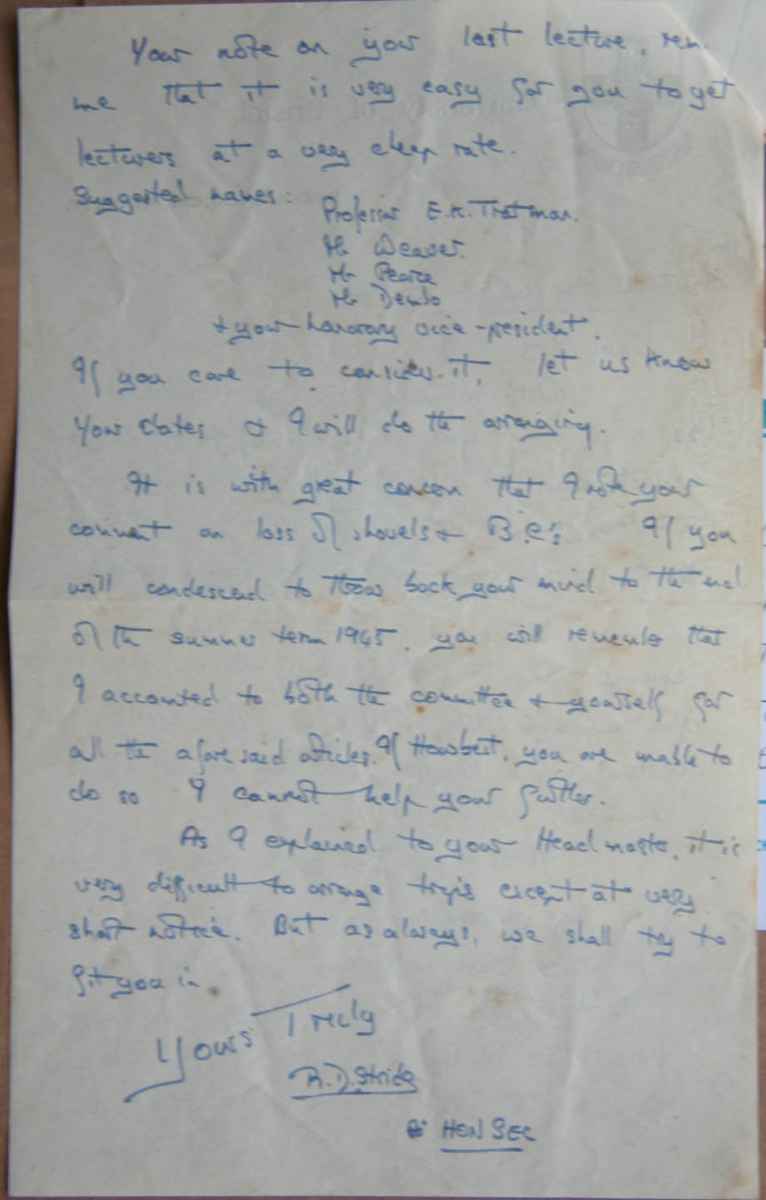 Your note on your last lecture, rem
me that it is very easy for you to get
lecturers at a very cheap rate.
Suggested names:
Professor E.K. Tratman.
Mr Weaver.
Mr Pearce
Mr
+ your honorary vice-president.
If you care to consider it, let us know
Your dates & I will do the arranging.
It is with great concern that I note your
comment on loss of shovels + B.C's. If you
will condescend to throw back your mind to the end
of the summer term 1945, you will remember that
I accounted to both the committee + yourself for
all the aforesaid articles. If Howbeit, you are unable to
do so I cannot help you further.
As I explained to your Headmaster, it is
very difficult to arrange trips except at very
short notice. But as always, we shall try to
fit you in.
Yours Truly
R.D. Stride
HON SEC